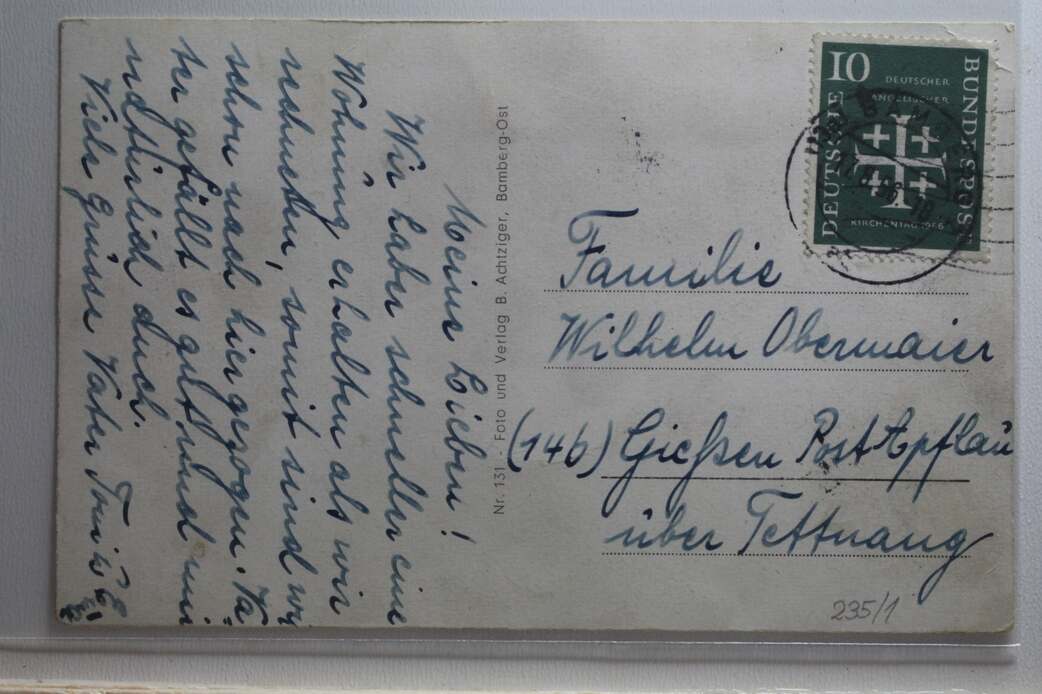 Meine Lieben!
Wir haben schneller eine
Wohnung erhalten als wir
rechneten, somit sind wir
schon nach hier gezogen. Va-
ter gefällt es gut und mir
natürlich auch.
Viele Grüsse Vater Toni
Nr. 131 - Foto und Verlag B. Achtziger, Bamberg-Ost
10
DEUTSCHER
EVANGELISCHER
KIRCHENTAG 1956
DEUTSCHE
BUNDESPOST
Familie
Wilhelm Obermaier
(14b) Gießen Post Apflau
über Tettnang
235/1